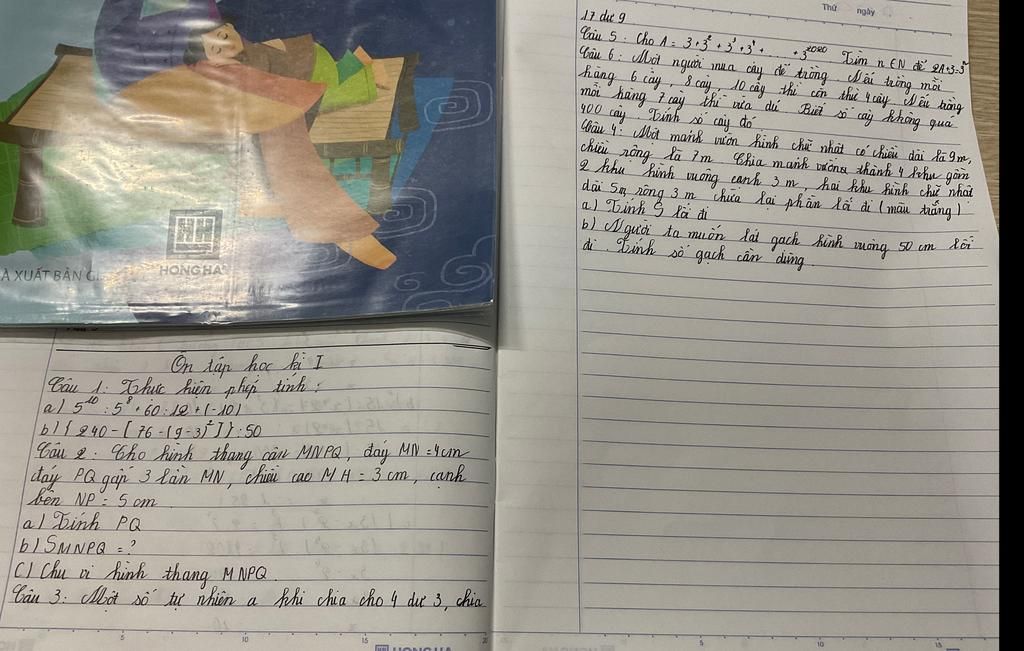 À XUẤT BẢN G
HONG HA
Ôn tập học kì I
Câu 1: Thực hiện phép tính:
a) 5¹⁰ : 5⁸ + 60 : 12 + (-10)
b) { 240 - [ 76 - (9 - 3)² ] } : 50
Câu 2: Cho hình thang cân MNPQ, đáy MN = 4cm
đáy PQ gấp 3 lần MN, chiều cao MH = 3 cm, cạnh
bên NP = 5 cm
a) Tính PQ
b) SMNPQ = ?
C) Chu vi hình thang MNPQ.
Câu 3: Một số tự nhiên a khi chia cho 4 dư 3, chia
5 10 15 20
HONG HA
Thứ ngày
17 dư 9
Câu 5: Cho A = 3 + 3² + 3³ + 3⁴ + .... + 3²⁰²⁰ Tìm n ∈ N để 2A + 3 = 3ⁿ
Câu 6: Một người mua cây để trồng. Nếu trồng mỗi
hàng 6 cây, 8 cây, 10 cây thì còn thừ 4 cây. Nếu trồng
mỗi hàng 7 cây thì vừa đủ. Biết số cây không quá
400 cây. Tính số cây đó
Câu 4: Một mảnh vườn hình chữ nhật có chiều dài là 9m,
chiều rộng là 7m. Chia mảnh vườn thành 4 khu gồm
2 khu hình vuông cạnh 3 m, hai khu hình chữ nhật
dài 5m rộng 3 m, chừa lại phần lối đi (màu trắng)
a) Tính S lối đi
b) Người ta muốn lát gạch hình vuông 50 cm lối
đi. Tính số gạch cần dùng.
5 10 15